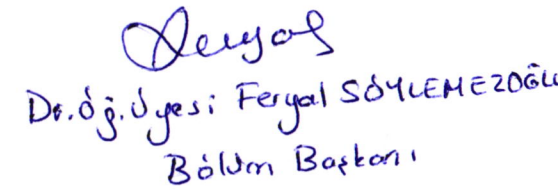 Feryal
Dr. Öğ. Üyesi Feryal SÖYLEMEZOĞLU
Bölüm Başkanı